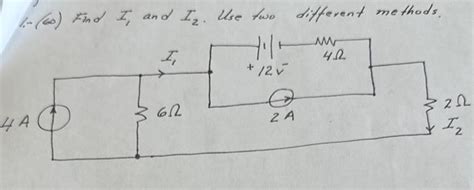 1.- (60) Find I₁ and I₂. Use two different methods.
I₁
+ 12 v -
4Ω
4 A
6Ω
2 A
2Ω
I₂